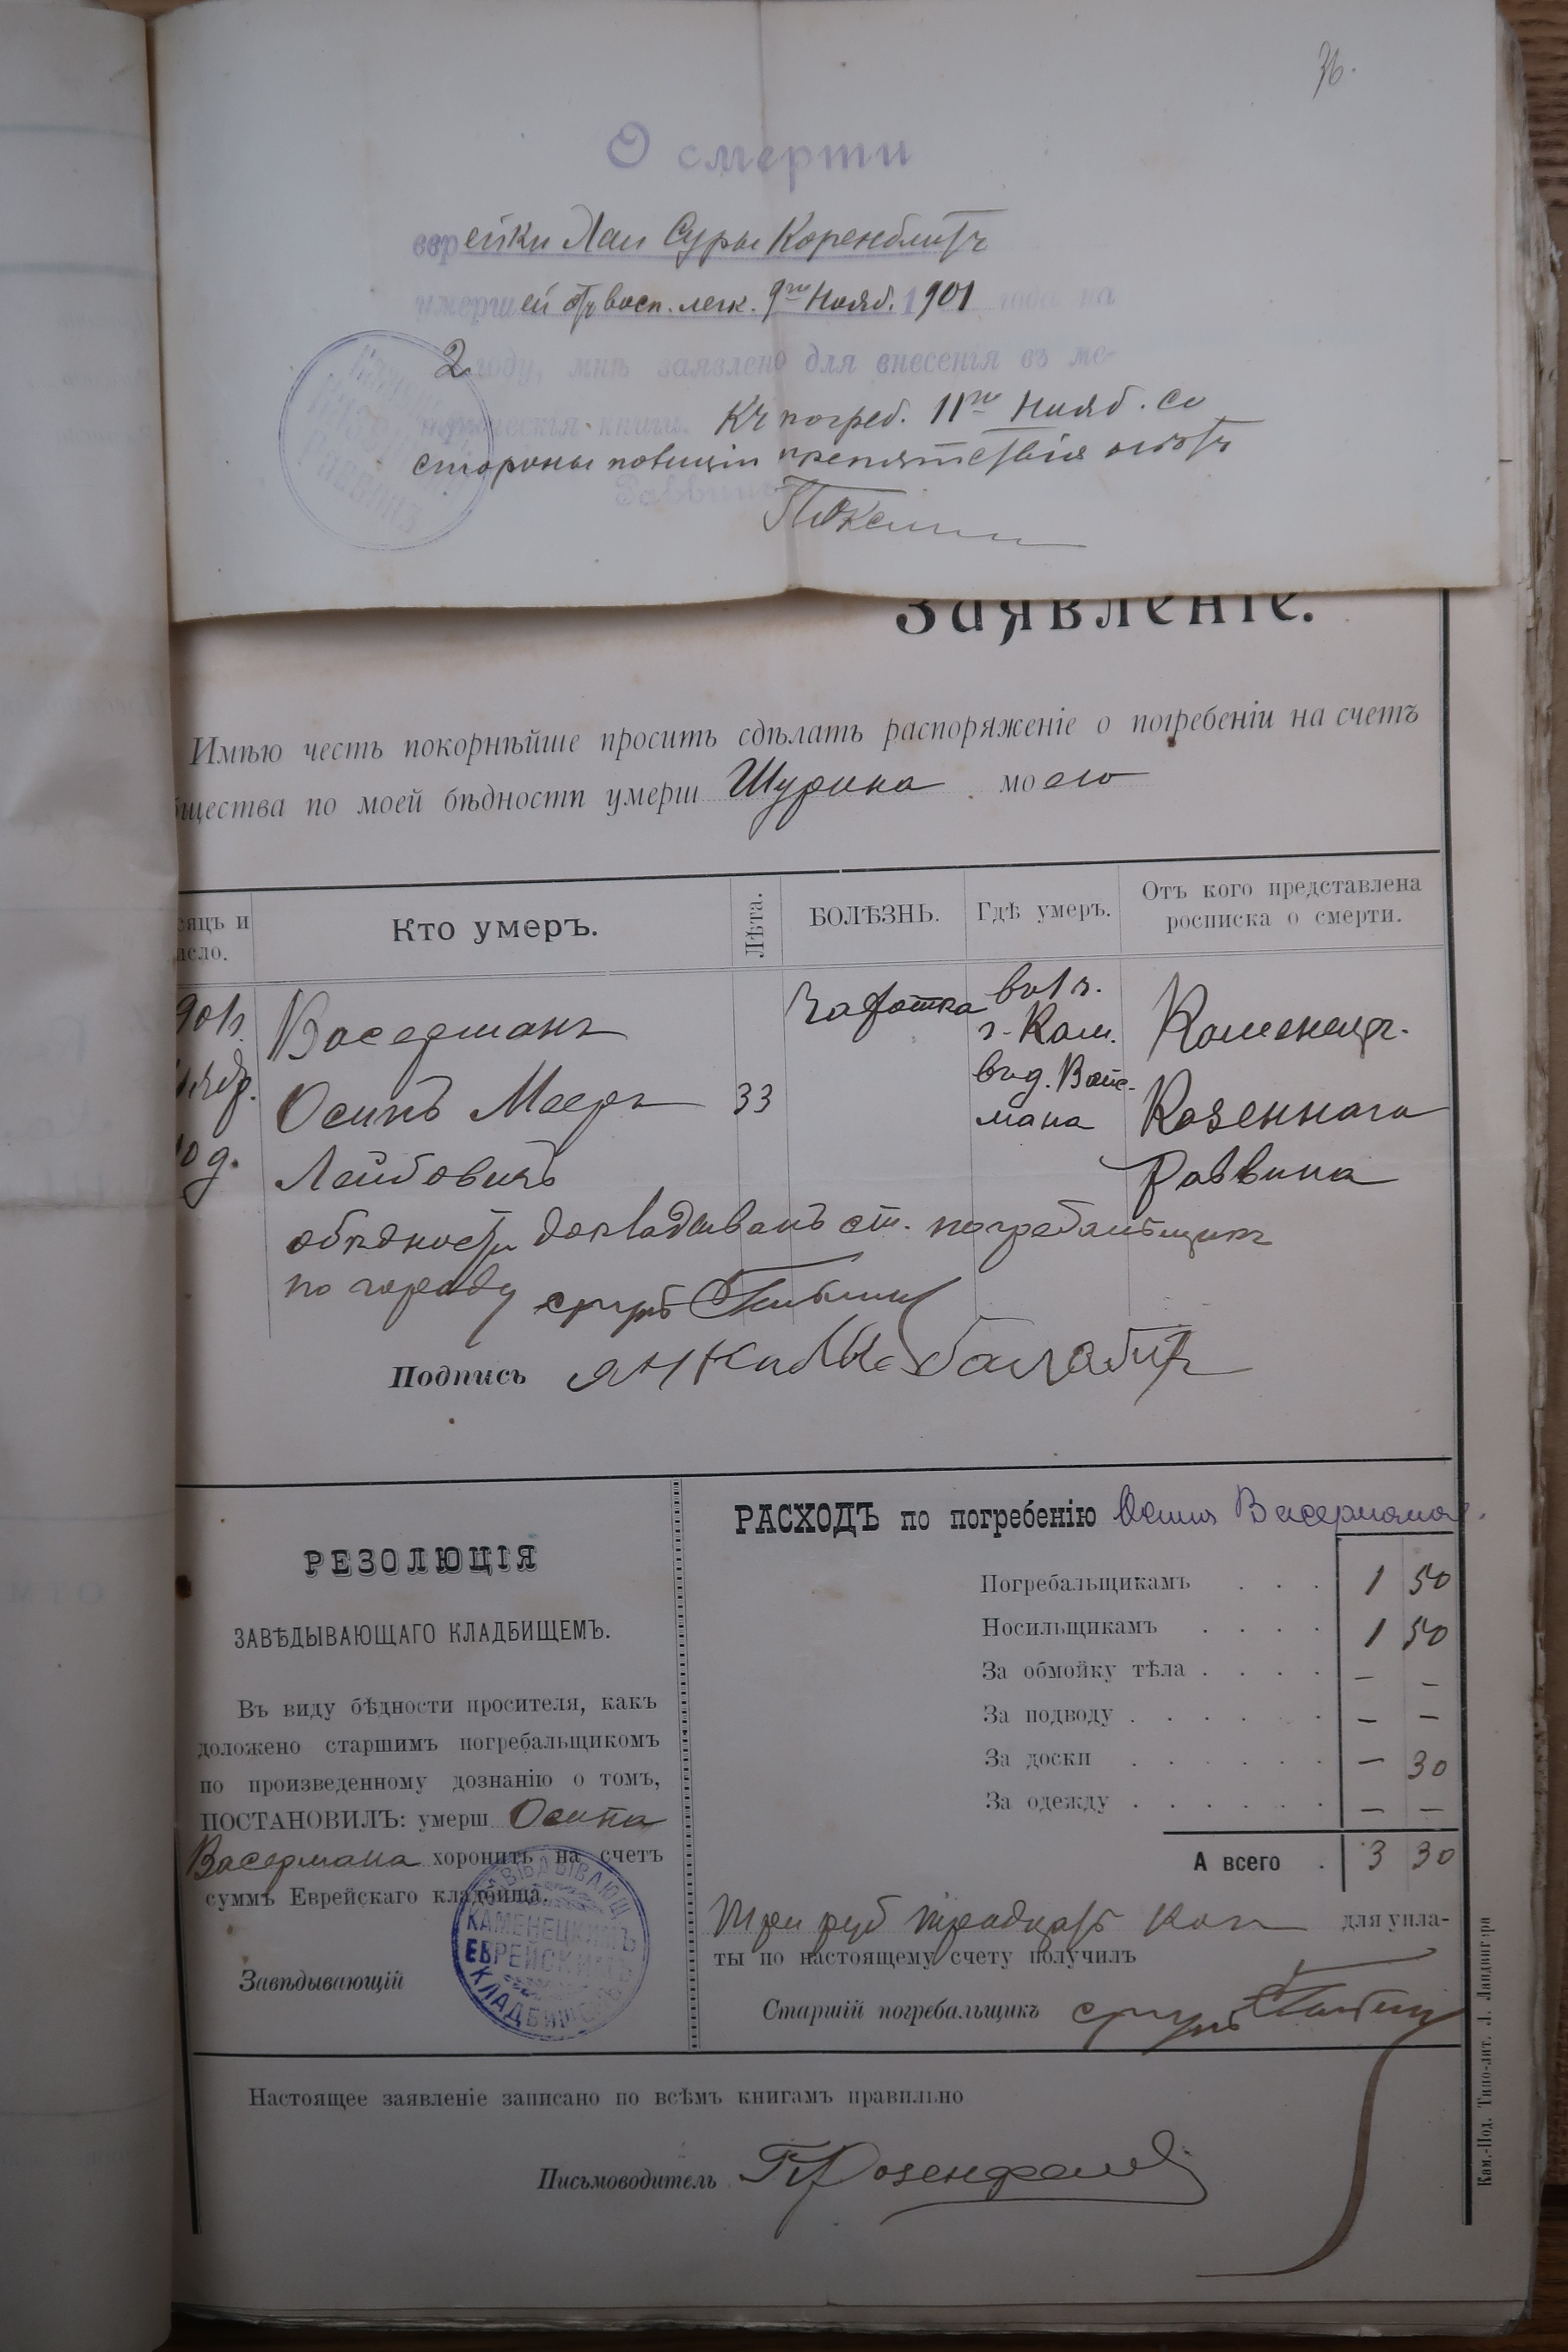 36.
О смерти
еврейки Хаи Суры Коренблитъ
умершей отъ восп. легк. 9го Нояб. 1901 года на
2 году, мнѣ заявлено для внесенія въ ме-
трическія книги. Къ погреб. 11го Нояб. со
стороны полиціи препятствія нѣтъ
Раввинъ
Заявленіе.
Имѣю честь покорнѣйше просить сдѣлать распоряженіе о погребеніи на счетъ
бщества по моей бѣдности умерш Шурина моего
сяцъ и
исло.
Кто умеръ.
Лѣта.
БОЛѢЗНЬ.
Гдѣ умеръ.
Отъ кого представлена
росписка о смерти.
901г.
10 д.
Васерманъ
Осипъ Мееръ
Лейбовичъ
33
Чахотка
во 1 ч.
г. Кам.
въ д. Вайс-
мана
Каменецк.
Казеннаго
Раввина
обѣдности докладывалъ ст. погребальщикъ
по городу
Подпись
РЕЗОЛЮЦІЯ
ЗАВѢДЫВАЮЩАГО КЛАДБИЩЕМЪ.
Въ виду бѣдности просителя, какъ
доложено старшимъ погребальщикомъ
по произведенному дознанію о томъ,
ПОСТАНОВИЛЪ: умерш Осипа
Васермана хоронить на счетъ
суммъ Еврейскаго кладбища.
Завѣдывающій
ЗАВѢДЫВАЮЩ
КАМЕНЕЦКИМЪ
ЕВРЕЙСКИМЪ
КЛАДБИЩЕМЪ
РАСХОДЪ по погребенію Осипа Васермана
Погребальщикамъ . . . 1 50
Носильщикамъ . . . . 1 50
За обмойку тѣла . . . . — —
За подводу . . . . . — —
За доски . . . . . — 30
За одежду . . . . . . — —
А всего . 3 30
Три руб тридцать коп для упла-
ты по настоящему счету получилъ
Старшій погребальщикъ
Настоящее заявленіе записано по всѣмъ книгамъ правильно
Письмоводитель Розенфельд
Кам.-Под. Типо-лит. Л. Ландвигера